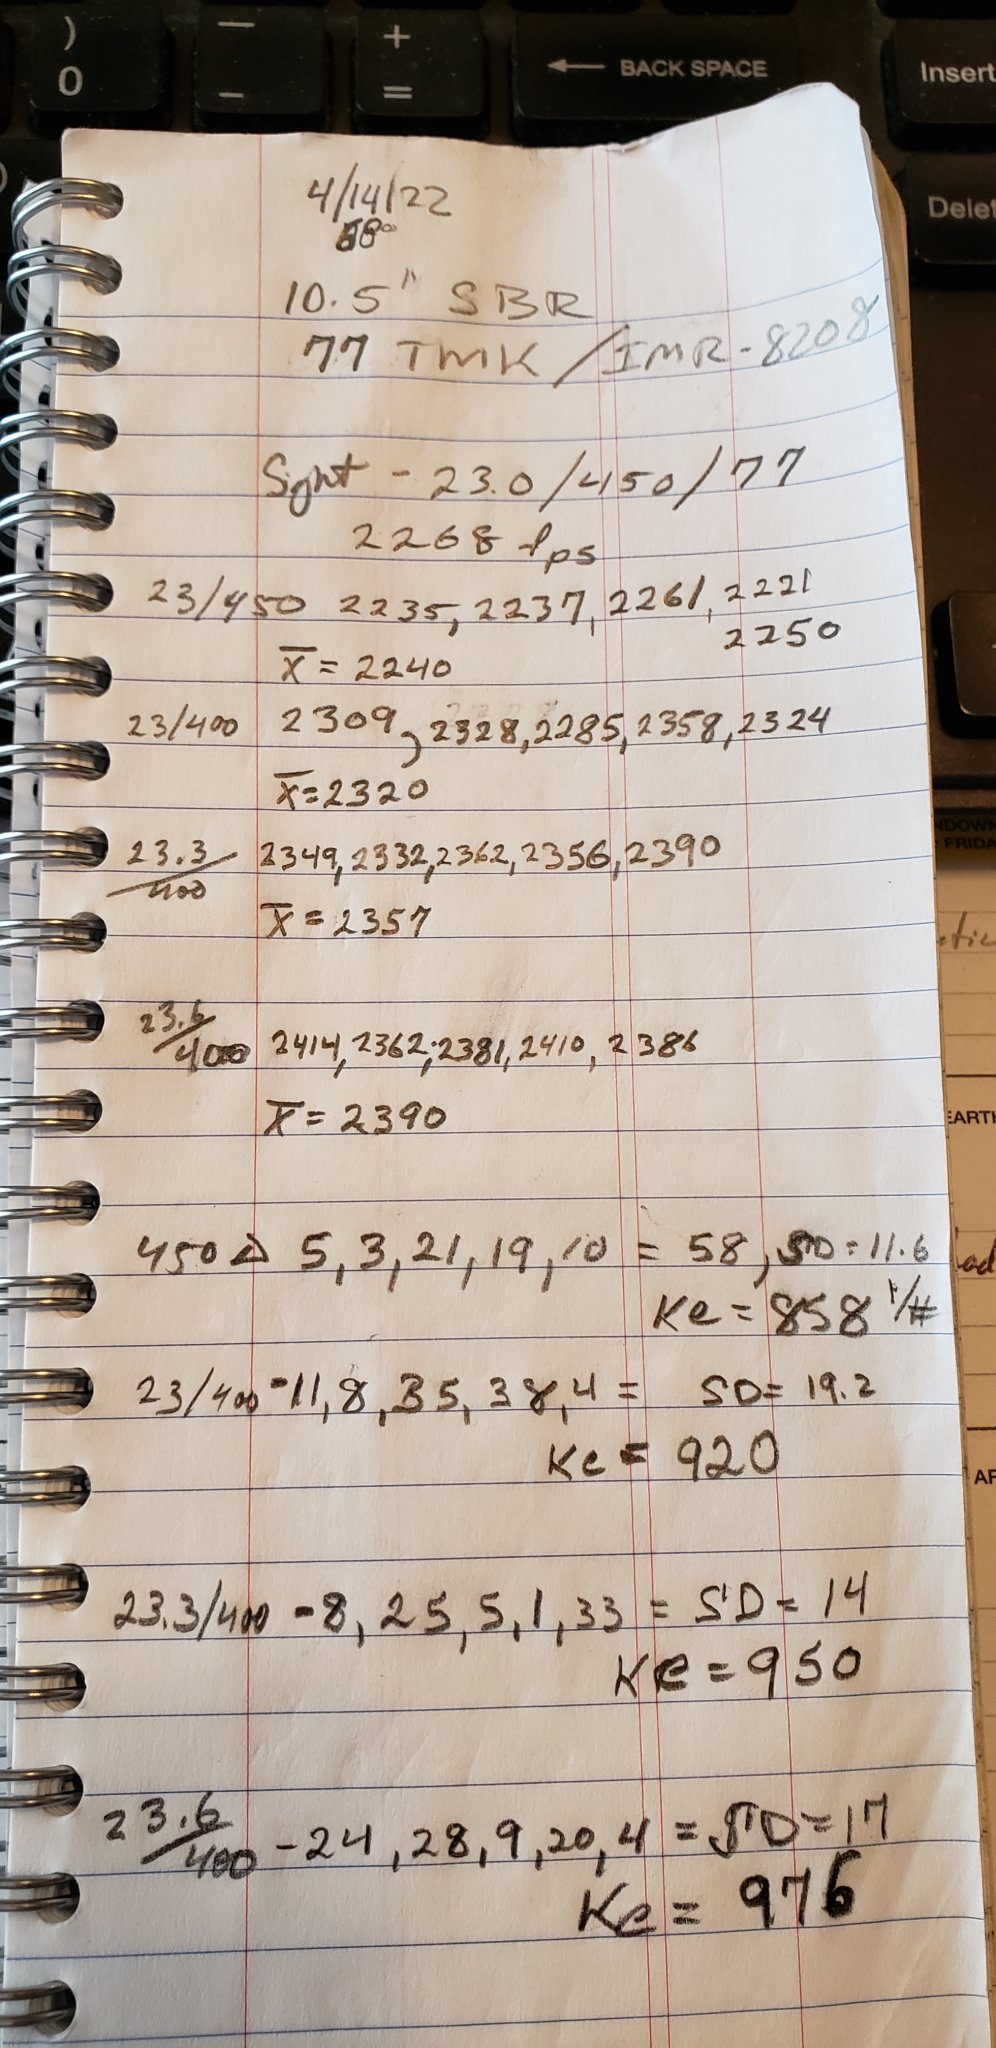 )
0
—
-
+
=
← BACK SPACE
Insert
Delet
4/14/22
10.5" SBR
77 TMK/IMR-8208
Sight - 23.0/450/77
2268 fps
23/450 2235, 2237, 2261, 2221
2250
x̄ = 2240
23/400 2309, 2328, 2285, 2358, 2324
x̄=2320
23.3/400 2349, 2332, 2362, 2356, 2390
x̄ = 2357
23.6/400 2414, 2362, 2381, 2410, 2386
x̄ = 2390
450 Δ 5, 3, 21, 19, 10 = 58, SD = 11.6
Ke = 858 '/#
23/400 - 11, 8, 35, 38, 4 = SD = 19.2
Ke = 920
23.3/400 - 8, 25, 5, 1, 33 = SD = 14
Ke = 950
23.6/400 - 24, 28, 9, 20, 4 = SD = 17
Ke = 976
NDOWN
FRIDA
EARTH